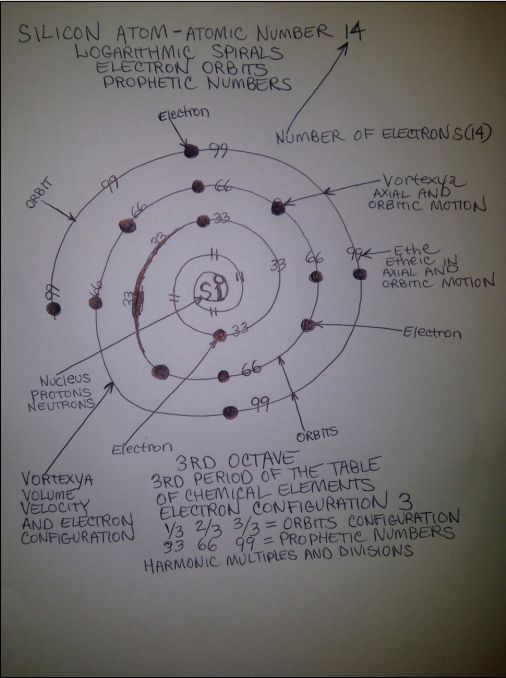 SILICON ATOM-ATOMIC NUMBER 14
LOGARITHMIC SPIRALS
ELECTRON ORBITS
PROPHETIC NUMBERS
NUMBER OF ELECTRONS(14)
Electron
99
99
ORBIT
66
Vortexya
AXIAL AND
ORBITIC MOTION
66
33
33
11
33
66
99
Ethe
Etheic IN
AXIAL AND
ORBITIC MOTION
99
66
33
11
Si
11
11
33
Electron
Nucleus
PROTONS
NEUTRONS
66
99
ORBITS
Electron
VORTEXYA
VOLUME
VELOCITY
AND ELECTRON
CONFIGURATION
3RD OCTAVE
3RD PERIOD OF THE TABLE
OF CHEMICAL ELEMENTS
ELECTRON CONFIGURATION 3
1/3 2/3 3/3 = ORBITS CONFIGURATION
33 66 99 = PROPHETIC NUMBERS
HARMONIC MULTIPLES AND DIVISIONS